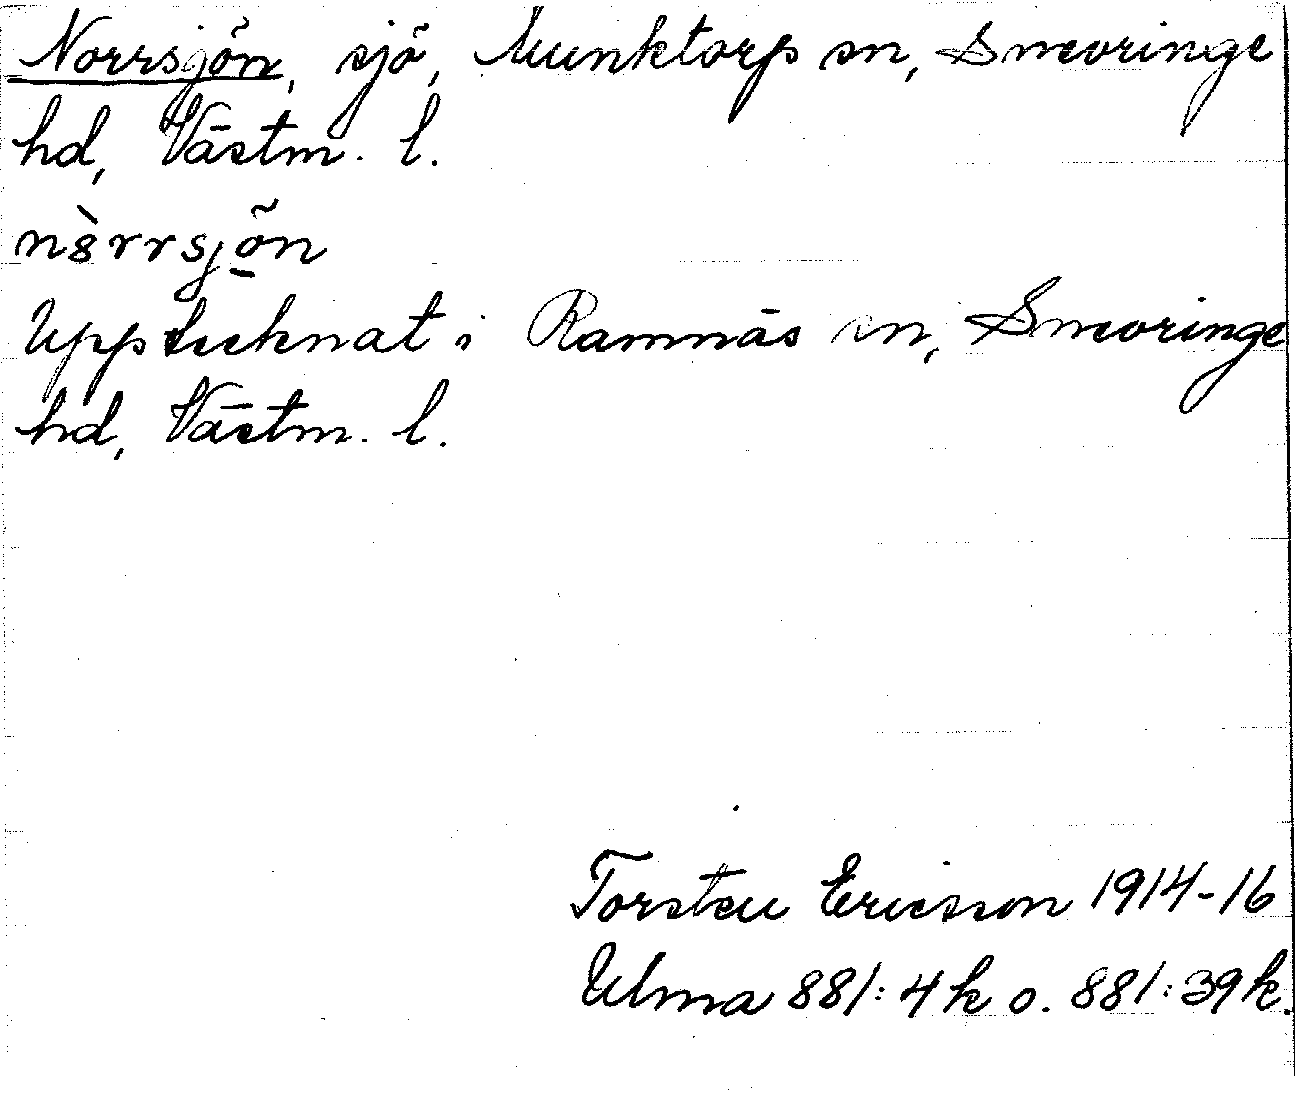 Norrsjön, sjö, Munktorps sn, Snevringe
hd, Västm. l.
nòrrsjön
Upptecknat i Ramnäs sn, Snevringe
hd, Västm. l.
Torsten Ericsson 1914-16
Ulma 881:4k o. 881:39k.